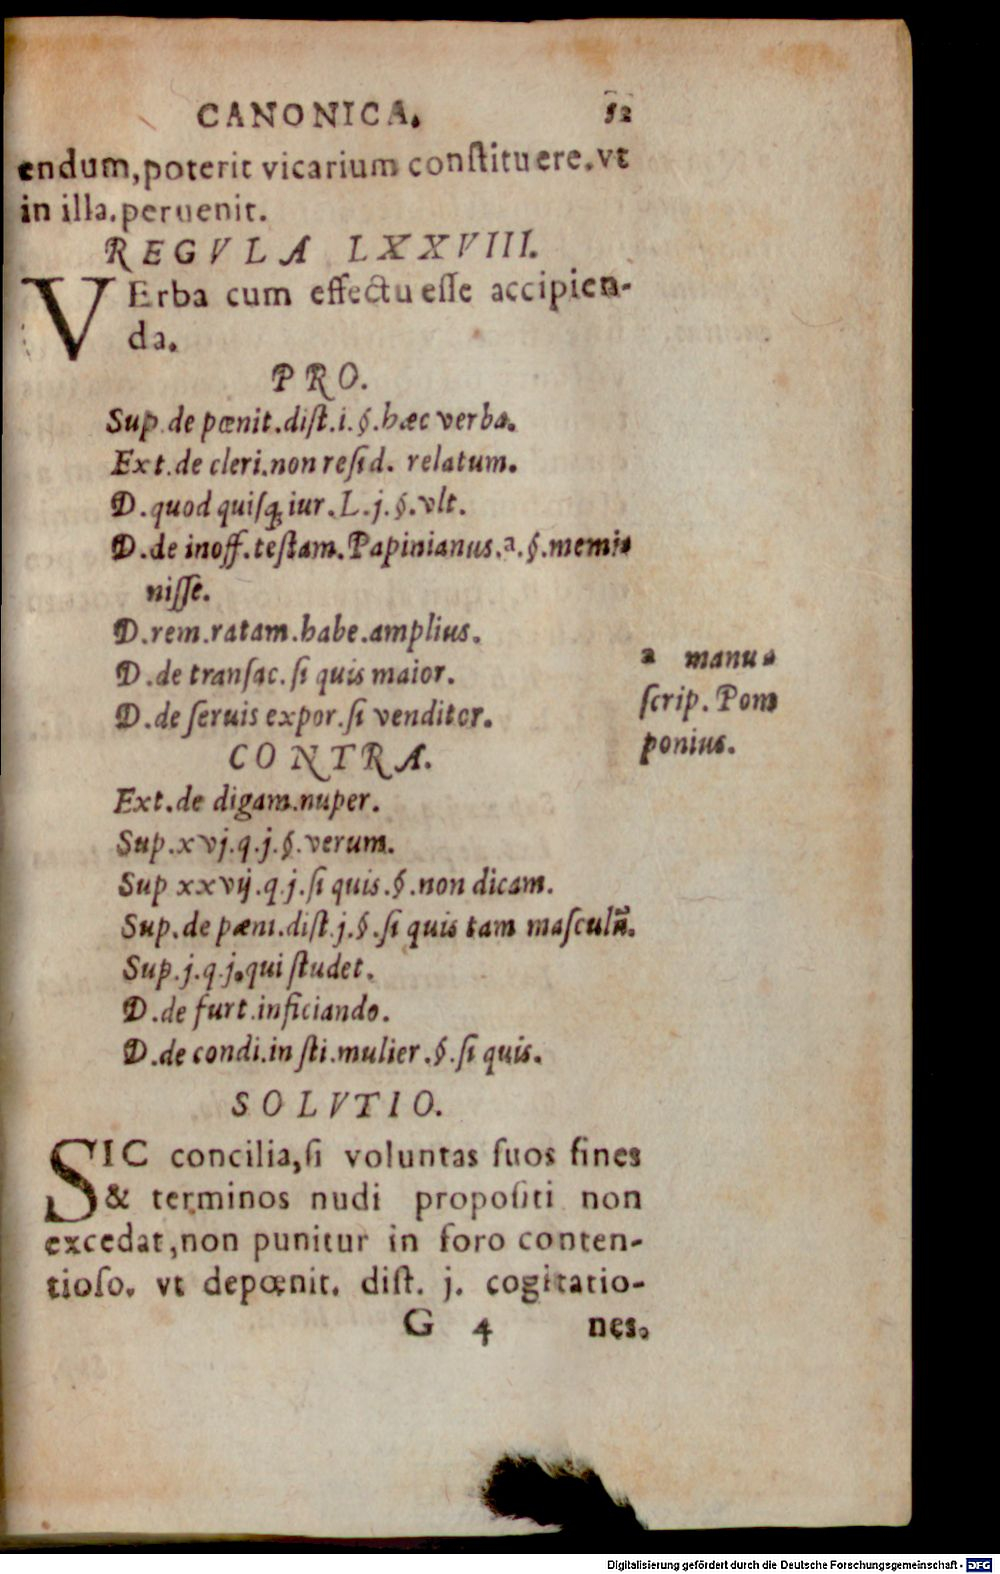 CANONICA. 52
endum, poterit vicarium conſtituere. vt
in illa. peruenit.
REGVLA LXXVIII.
VErba cum effectu eſſe accipien-
da.
PRO.
Sup. de pœnit. diſt. i. §. hæc verba.
Ext. de cleri. non reſid. relatum.
D. quod quiſq; iur. L. j. §. vlt.
D. de inoff. teſtam. Papinianus. a. §. memi-
niſſe.
D. rem. ratam. habe. amplius.
D. de tranſac. ſi quis maior.
D. de ſeruis expor. ſi venditor.
a manu-
ſcrip. Pom
ponius.
CONTRA.
Ext. de digam. nuper.
Sup. xvj. q. j. §. verum.
Sup xxvij. q. j. ſi quis. §. non dicam.
Sup. de pæni. diſt. j. §. ſi quis tam maſculū.
Sup. j. q. j. qui ſtudet.
D. de furt. inficiando.
D. de condi. in ſti. mulier. §. ſi quis.
SOLVTIO.
SIC concilia, ſi voluntas ſuos fines
& terminos nudi propoſiti non
excedat, non punitur in foro conten-
tioſo. vt depœnit. diſt. j. cogitatio-
G 4 nes.
Digitalisierung gefördert durch die Deutsche Forschungsgemeinschaft - DFG